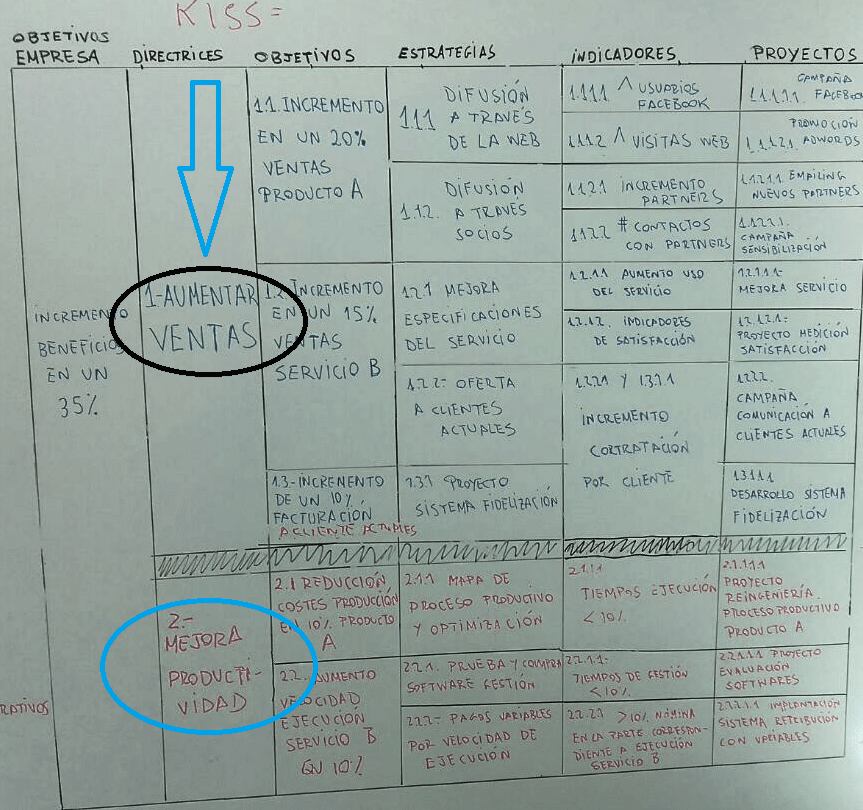 KISS=
OBJETIVOS
EMPRESA
DIRECTRICES
OBJETIVOS
ESTRATEGIAS
INDICADORES
PROYECTOS
INCREMENTO
BENEFICIOS
EN UN
35%
1-AUMENTAR
VENTAS
1.1. INCREMENTO
EN UN 20%
VENTAS
PRODUCTO A
1.1.1
DIFUSIÓN
A TRAVÉS
DE LA WEB
1.1.1.1 ^ USUARIOS
FACEBOOK
1.1.1.1.1. CAMPAÑA
FACEBOOK
1.1.1.2 ^ VISITAS WEB
PROMOCIÓN
1.1.1.2.1. ADWORDS
1.1.2.
DIFUSIÓN
A TRAVÉS
SOCIOS
1.1.2.1 INCREMENTO
PARTNERS
1.1.2.1.1 EMAILING
NUEVOS PARTNERS
1.1.2.2 # CONTACTOS
CON PARTNERS
1.1.2.2.1.
CAMPAÑA
SENSIBILIZACIÓN
1.2. INCREMENTO
EN UN 15%
VENTAS
SERVICIO B
1.2.1 MEJORA
ESPECIFICACIONES
DEL SERVICIO
1.2.1.1 AUMENTO USO
DEL SERVICIO
1.2.1.1.1-
MEJORA SERVICIO
1.2.1.2. INDICADORES
DE SATISFACCIÓN
1.2.1.2.1-
PROYECTO MEDICIÓN
SATISFACCIÓN
1.2.2- OFERTA
A CLIENTES
ACTUALES
1.2.2.1 Y 1.3.1.1
INCREMENTO
CONTRATACIÓN
POR CLIENTE
1.2.2.2.
CAMPAÑA
COMUNICACIÓN A
CLIENTES ACTUALES
1.3.- INCREMENTO
DE UN 10%
FACTURACIÓN
A CLIENTE ACTUALES
1.3.1 PROYECTO
SISTEMA FIDELIZACIÓN
1.3.1.1.1
DESARROLLO SISTEMA
FIDELIZACIÓN
2.-
MEJORA
PRODUCTI-
VIDAD
2.1 REDUCCIÓN
COSTES PRODUCCIÓN
EN 10% PRODUCTO
A
2.1.1 MAPA DE
PROCESO PRODUCTIVO
Y OPTIMIZACIÓN
2.1.1.1
TIEMPOS EJECUCIÓN
<10%
2.1.1.1.1
PROYECTO
REINGENIERÍA
PROCESO PRODUCTIVO
PRODUCTO A
2.2. AUMENTO
VELOCIDAD
EJECUCIÓN
SERVICIO B
EN 10%
2.2.1. PRUEBA Y COMPRA
SOFTWARE GESTIÓN
2.2.1.1-
TIEMPOS DE GESTIÓN
<10%
2.2.1.1.1 PROYECTO
EVALUACIÓN
SOFTWARES
2.2.2- PAGOS VARIABLES
POR VELOCIDAD DE
EJECUCIÓN
2.2.2.1 >10% NÓMINA
EN LA PARTE CORRESPON-
DIENTE A EJECUCIÓN
SERVICIO B
2.2.2.1.1 IMPLANTACIÓN
SISTEMA RETRIBUCIÓN
CON VARIABLES
RATIVOS